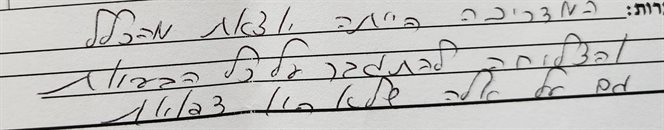 רות: המדריכה הייתה יוצאת מהכלל
והצליחה להתגבר על כל הבעיות
גם על אלה שלא היו צפויות